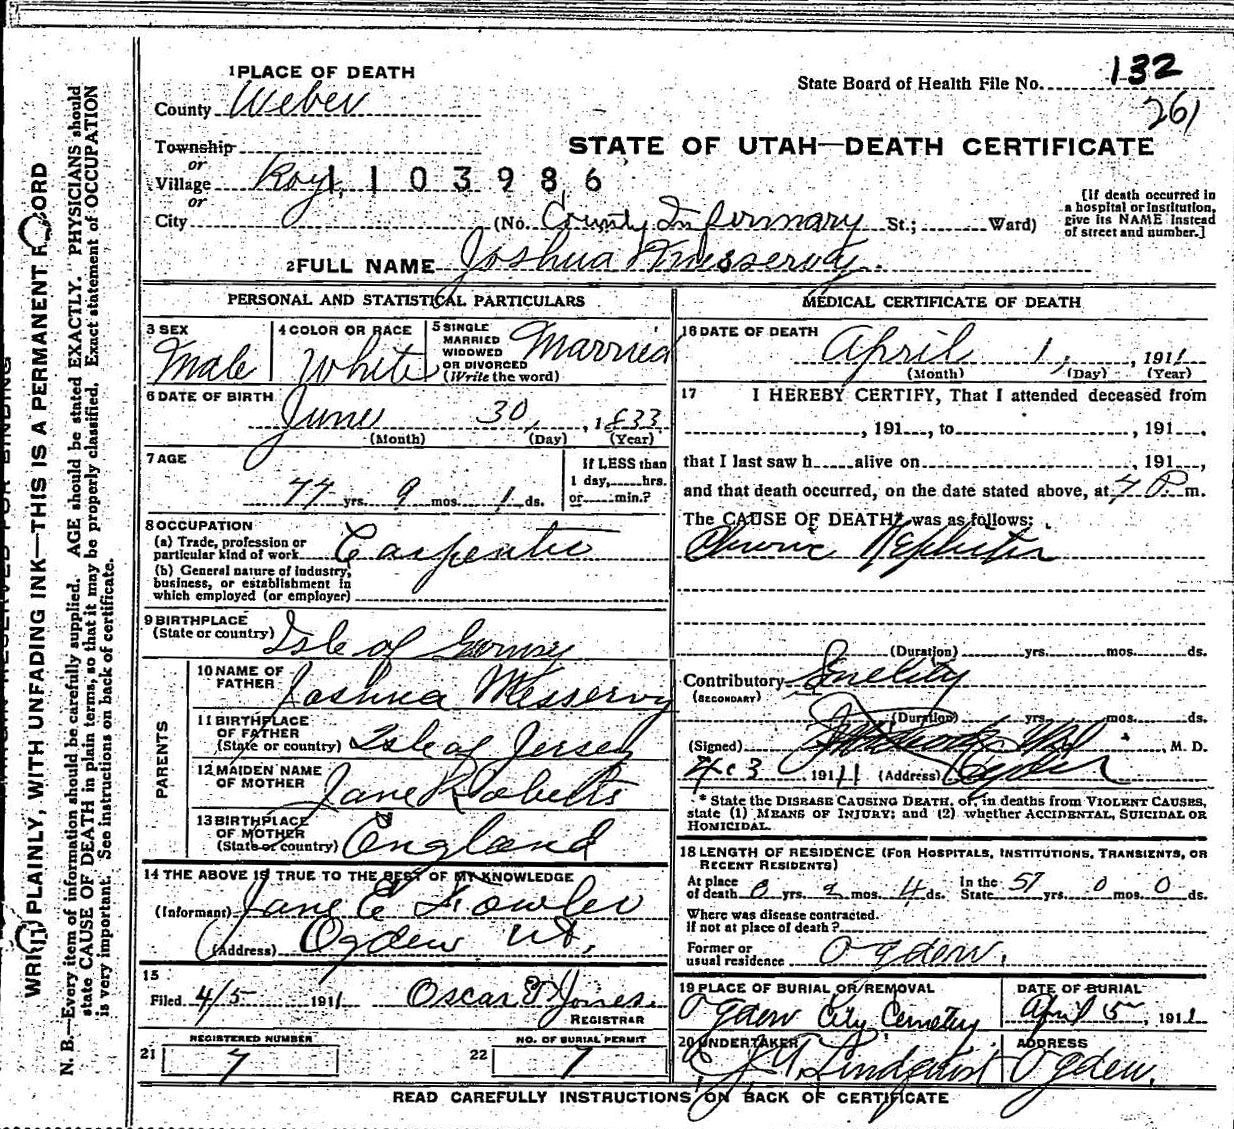 1 PLACE OF DEATH
State Board of Health File No. 132
County Weber
261
Township
or
STATE OF UTAH—DEATH CERTIFICATE
Village Roy 1103986
or
City (No. County Infirmary St.; Ward)
[If death occurred in a hospital or institution, give its NAME instead of street and number.]
2 FULL NAME Joshua Messervy.
PERSONAL AND STATISTICAL PARTICULARS
3 SEX Male
4 COLOR OR RACE White
5 SINGLE MARRIED WIDOWED OR DIVORCED (Write the word) Married
6 DATE OF BIRTH June 30, 1833
(Month) (Day) (Year)
7 AGE 77 yrs. 9 mos. 1 ds.
If LESS than 1 day, hrs. or min.?
8 OCCUPATION
(a) Trade, profession or particular kind of work Carpenter
(b) General nature of industry, business, or establishment in which employed (or employer)
9 BIRTHPLACE
(State or country) Isle of
PARENTS
10 NAME OF FATHER Joshua Messervy
11 BIRTHPLACE OF FATHER (State or country) Isle of Jersey
12 MAIDEN NAME OF MOTHER Jane Roberts
13 BIRTHPLACE OF MOTHER (State or country) England
14 THE ABOVE IS TRUE TO THE BEST OF MY KNOWLEDGE
(Informant) Jane E Fowler
(Address) Ogden Ut.
15
Filed 4/5 1911 Oscar Jones.
REGISTRAR
REGISTERED NUMBER
21 7
NO. OF BURIAL PERMIT
22 7
MEDICAL CERTIFICATE OF DEATH
16 DATE OF DEATH April 1, 1911
(Month) (Day) (Year)
17 I HEREBY CERTIFY, That I attended deceased from
, 191 , to , 191 ,
that I last saw h alive on , 191 ,
and that death occurred, on the date stated above, at 7 P. m.
The CAUSE OF DEATH* was as follows:
Chronic Nephritis
(Duration) yrs. mos. ds.
Contributory Senility
(SECONDARY)
(Duration) yrs. mos. ds.
(Signed) M. D.
4-3 1911 (Address) Ogden
* State the DISEASE CAUSING DEATH, or, in deaths from VIOLENT CAUSES, state (1) MEANS OF INJURY; and (2) whether ACCIDENTAL, SUICIDAL OR HOMICIDAL.
18 LENGTH OF RESIDENCE (FOR HOSPITALS, INSTITUTIONS, TRANSIENTS, OR RECENT RESIDENTS)
At place of death 0 yrs. 2 mos. 4 ds. In the State 57 yrs. 0 mos. 0 ds.
Where was disease contracted.
If not at place of death?
Former or usual residence Ogden.
19 PLACE OF BURIAL OR REMOVAL
Ogden City Cemetery
DATE OF BURIAL
April 5, 1911
20 UNDERTAKER
Lindquist
ADDRESS
Ogden.
READ CAREFULLY INSTRUCTIONS ON BACK OF CERTIFICATE
MARGIN RESERVED FOR BINDING
WRITE PLAINLY, WITH UNFADING INK—THIS IS A PERMANENT RECORD
N. B.—Every item of information should be carefully supplied. AGE should be stated EXACTLY. PHYSICIANS should
state CAUSE OF DEATH in plain terms, so that it may be properly classified. Exact statement of OCCUPATION
is very important. See instructions on back of certificate.